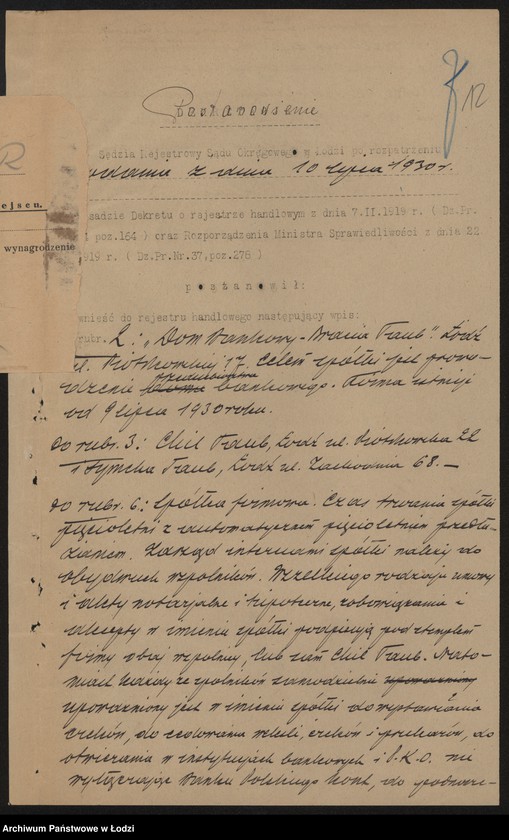 12
Postanowienie
Sędzia Rejestrowy Sądu Okręgowego w Łodzi po rozpatrzeniu
podania z dnia 10 lipca 1930 r.
R
ejscu.
wynagrodzenie
zasadzie Dekretu o rejestrze handlowym z dnia 7.II.1919 r. ( Dz.Pr.
poz.164 ) oraz Rozporządzenia Ministra Sprawiedliwości z dnia 22
1919 r. ( Dz.Pr.Nr.37,poz.278 )
p o s t a n o w i ł :
wnieść do rejestro handlowego następujący wpis:
rubr. 2: „Dom Bankowy - Bracia Taub". Łódź
ul. Piotrkowskiej 17. Celem spółki jest prowa-
dzenie przedsiębiorstwa bankowego. Firma istnieje
od 9 lipca 1930 roku.
Do rubr. 3: Chil Taub, Łódź ul. Piotrkowska 22
i Symcha Taub, Łódź ul. Zachodnia 68. —
Do rubr. 6: Spółka firmowa. Czas trwania spółki
pięcioletni z automatycznem pięcioletniem przedłu-
żaniem. Zarząd interesami spółki należy do
obydwuch wspólników. Wszelkiego rodzaju umowy
i akty notarjalne i hipoteczne, zobowiązania i
akcepty w imieniu spółki podpisują pod stemplem
firmy obaj wspólnicy, lub sam Chil Taub. Nato-
miast każdy ze wspólników samodzielnie upoważniony
upoważniony jest w imieniu spółki do wystawiania
czeków, do żyrowania weksli, czeków i przekazów, do
otwierania w instytucjach bankowych i P.K.O. nie
wyłączając Banku Polskiego kont, do podnosze-
Archiwum Państwowe w Łodzi